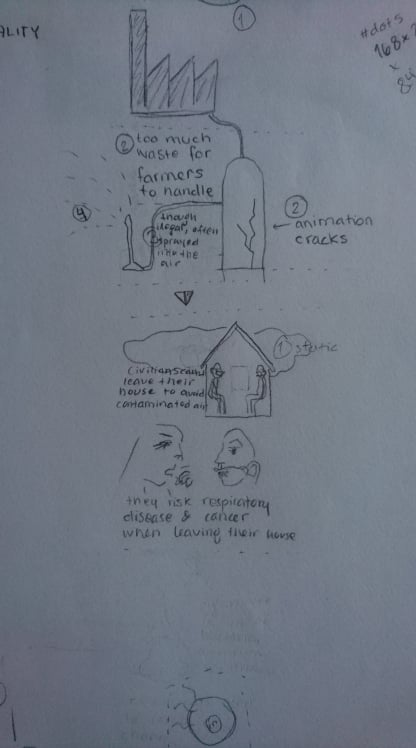 ALITY
①
#dots
168 x
x
84
② too much
waste for
farmers
to handle
④
though
illegal, often
sprayed
into the
air
②
animation
cracks
① static
leave their
house to avoid
contaminated air
they risk respiratory
disease & cancer
when leaving their house